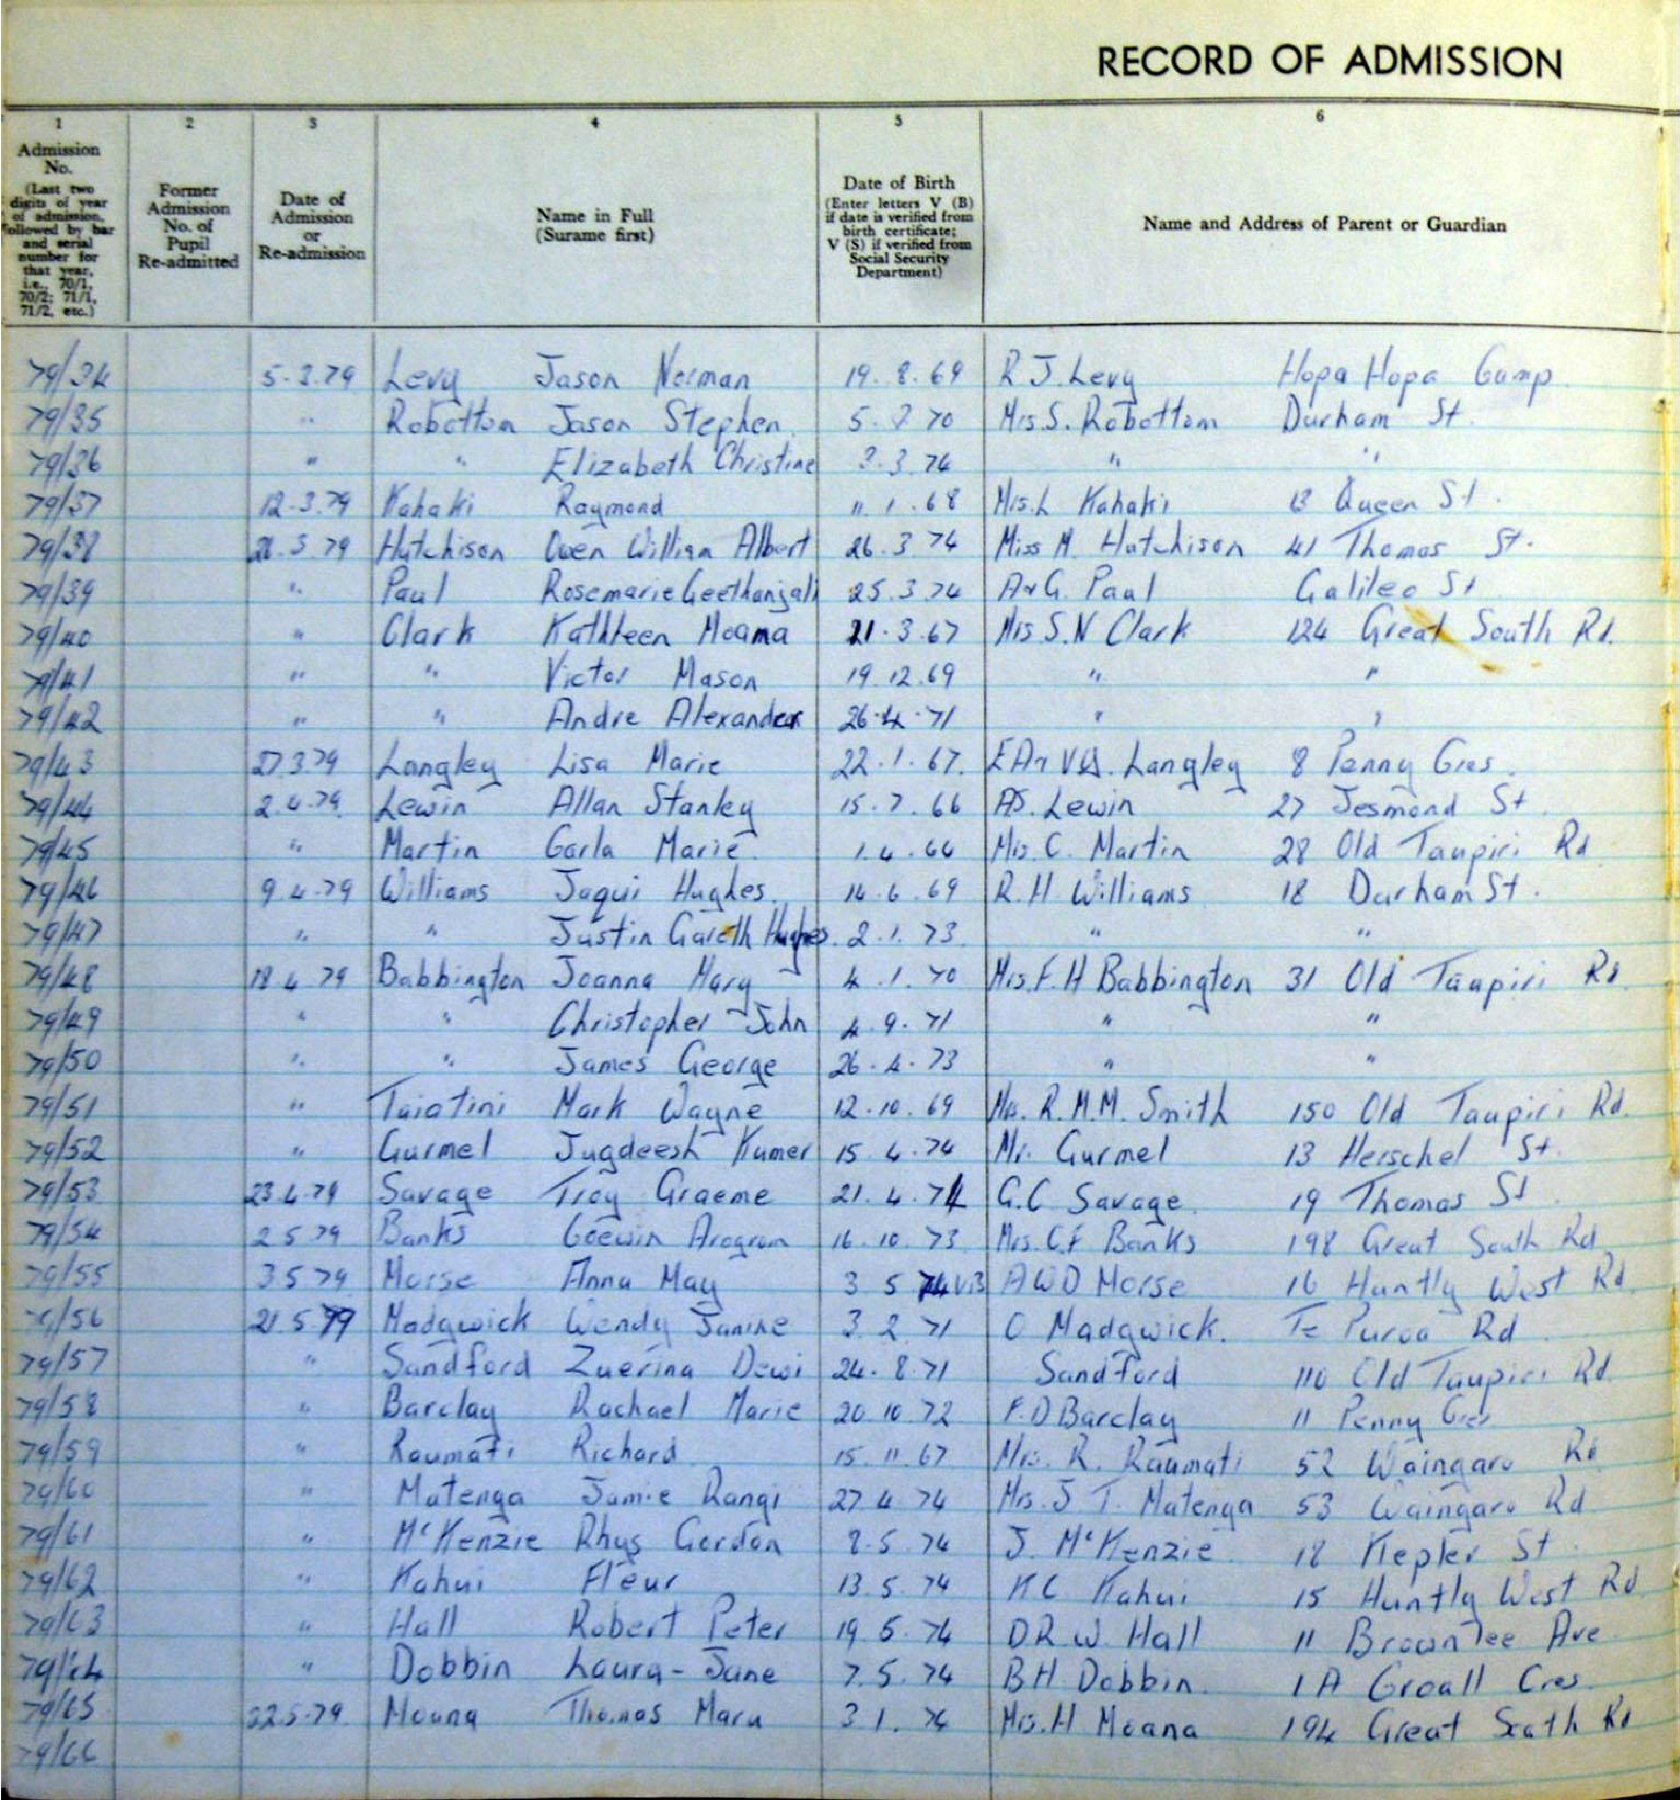 RECORD OF ADMISSION
1 2 3 4 5 6
Admission No. (Last two digits of year of admission, followed by bar and serial number for that year, i.e., 70/1, 70/2; 71/1, 71/2, etc.) Former Admission No. of Pupil Re-admitted Date of Admission or Re-admission Name in Full (Surame first) Date of Birth (Enter letters V (B) if date is verified from birth certificate; V (S) if verified from Social Security Department) Name and Address of Parent or Guardian
79/34 5.3.79 Levy Jason Norman 19.8.69 R J. Levy Hopa Hopa Camp
79/35 " Robottom Jason Stephen 5. 70 Mrs. S. Robottom Durham St.
79/36 " " Elizabeth Christine 3.3.74 " "
79/37 12.3.79 Kahaki Raymond 11.1.68 Mrs. L Kahaki 13 Queen St.
79/38 26.3.79 Hutchison Owen William Albert 26.3.74 Miss M. Hutchison 41 Thomas St.
79/39 " Paul Rosemarie Geethanjali 25.3.74 A & G. Paul Galileo St
79/40 " Clark Kathleen Moama 21.3.67 Mrs S.N Clark 124 Great South Rd.
79/41 " " Victor Mason 19.12.69 " "
79/42 " " Andre Alexander 26.4.71 " "
79/43 27.3.79 Langley Lisa Marie 22.1.67. Langley 8 Penny Cres.
79/44 2.4.79 Lewin Allan Stanley 15.7.66 AS. Lewin 27 Jesmond St
79/45 " Martin Carla Marie 1.4. Mrs. C. Martin 28 Old Taupiri Rd
79/46 9.4.79 Williams Jaqui Hughes. 14.6.69 R.H Williams 18 Durham St.
79/47 " " Justin Gareth Hughes. 2.1.73 " "
79/48 18.4.79 Babbington Joanna Mary 4.1.70 Mrs. F. H Babbington 31 Old Taupiri Rd.
79/49 " " Christopher John 4.9.71 " "
79/50 " " James George 26.4.73 " "
79/51 " Taiatini Mark Wayne 12.10.69 R.M.M. Smith 150 Old Taupiri Rd.
79/52 " Gurmel Jugdeesh Kumer 15.4.74 Mr. Gurmel 13 Herschel St.
79/53 23.4.79 Savage Troy Graeme 21.4.74 G.C Savage. 19 Thomas St
79/54 2 5 79 Banks 16.10.73 Mrs. C.F Banks 198 Great South Rd
79/55 3 5 79 Morse Anna May 3 5 74 A W D Morse 16 Huntly West Rd
79/56 21.5.79 Madgwick Wendy Janine 3.2.71 O Madgwick. Te Puroa Rd
79/57 " Sandford Zuerina Dewi 24.8.71 Sandford 110 Old Taupiri Rd.
79/58 " Barclay Rachael Marie 20.10.72 F.D Barclay 11 Penny Cres
79/59 " Raumati Richard 15.11.67 Mrs. R. Raumati 52 Waingaro Rd
79/60 " Matenga Jamie Rangi 27 4 74 Mrs. J T. Matenga 53 Waingaro Rd
79/61 " McKenzie Rhys Gordon 8.5.74 J. McKenzie 18 Kepler St.
79/62 " Kahui Fleur 13.5.74 K C Kahui 15 Huntly West Rd
79/63 " Hall Robert Peter 19.5.74 D R W. Hall 11 Brownlee Ave
79/64 " Dobbin Laura-Jane 7.5.74 B H Dobbin. 1 A Croall Cres.
79/65 22.5.79 Moana Thomas Maru 3.1.74 Mrs. H Moana 194 Great South Rd
79/66